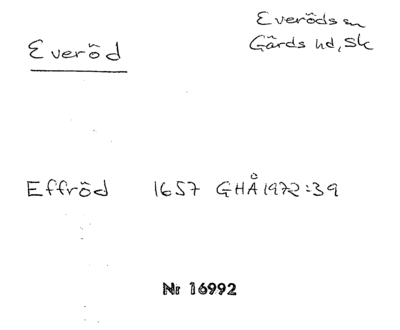 Everöd
Everöds sn
Gärds hd, Sk
Effröd 1657 GHÅ 1972:39
Nr 16992